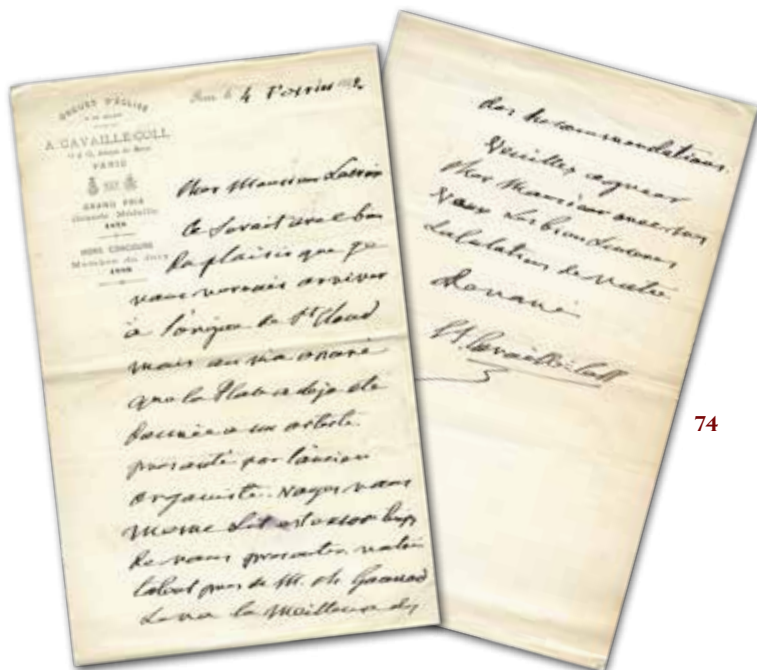 ORGUES D'ÉGLISE
A. CAVAILLÉ-COLL
PARIS
GRAND PRIX
Grande Médaille
1878
HORS CONCOURS
Membre du Jury
4 Février
Cher Monsieur
Ce serait avec bien
du plaisir que je
vous verrais arriver
à l'orgue de St Cloud
mais on m'a
que la place a déjà été
donnée a un artiste
présenté par l'ancien
organiste. Voyez vous
même
de vous presenter votre
talent près de M. Ch. Gounod
sera la meilleure des
des recommandations.
Veuillez agréer
cher Monsieur
salutations de votre
Devoué
A. Cavaillé-Coll
74